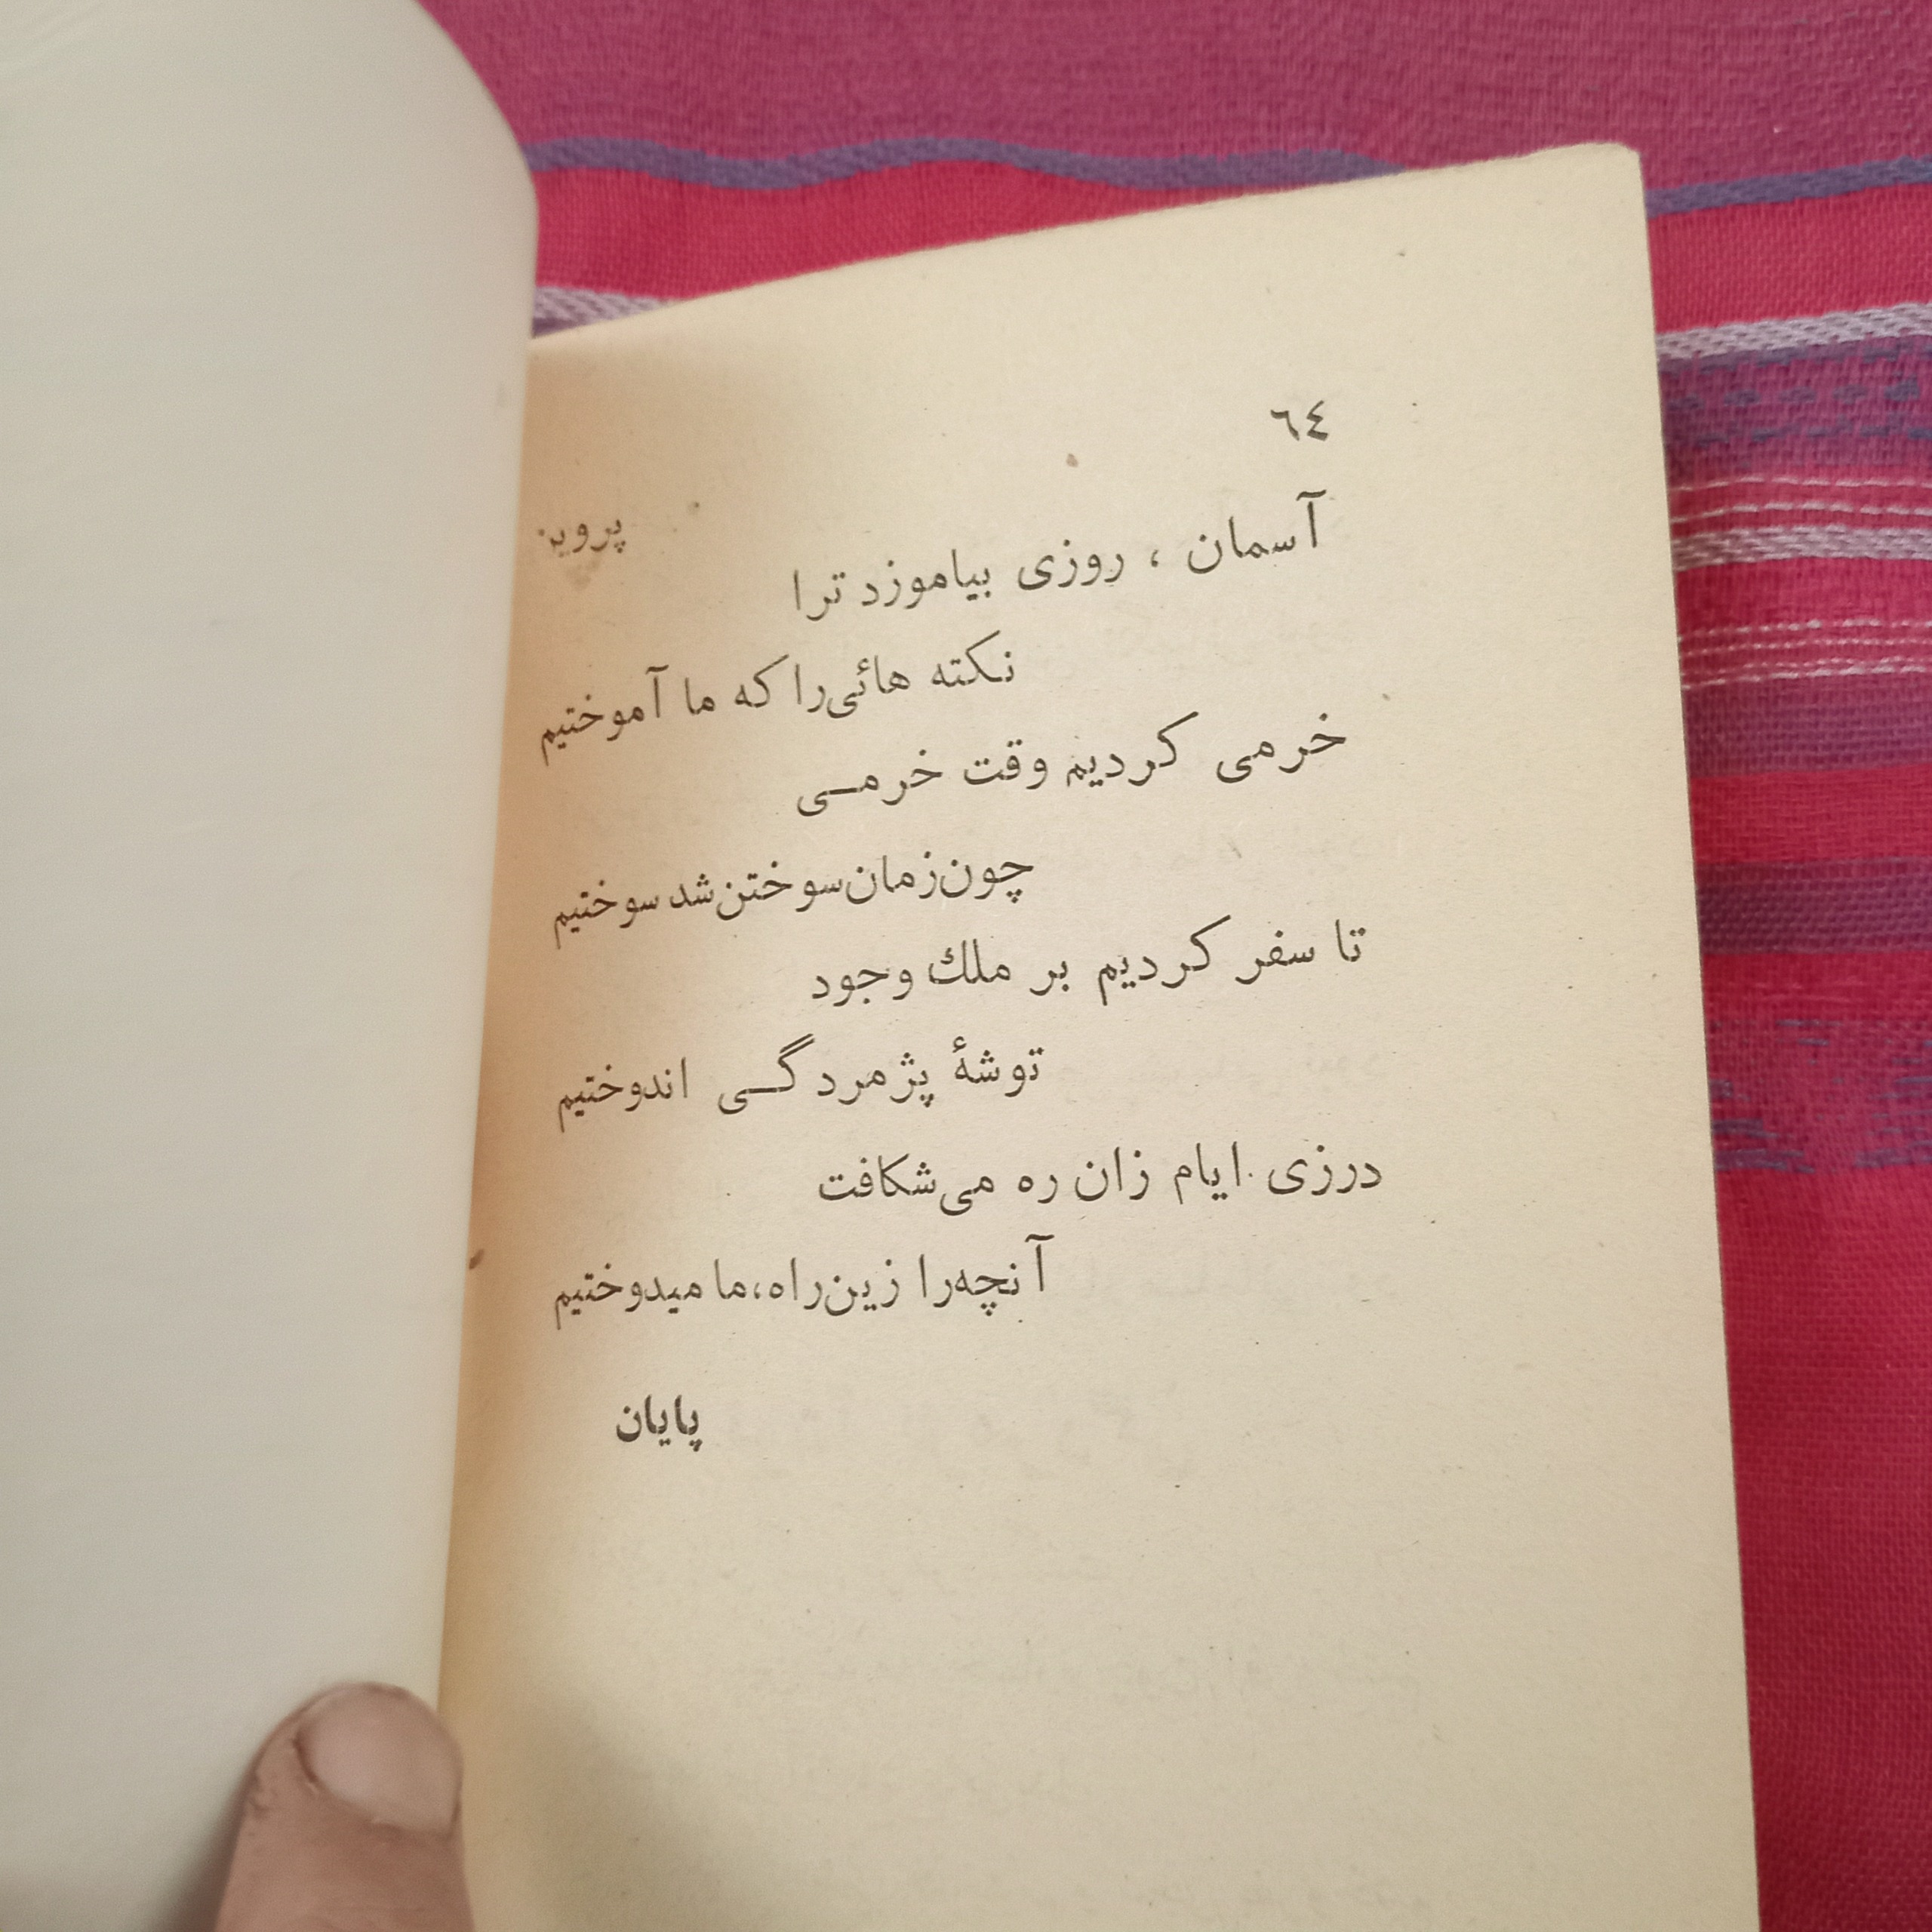 ٦٤
پروین
آسمان ، روزی بیاموزد ترا
نکته هائی‌را که ما آموختیم
خرمی کردیم وقت خرمـی
چون‌زمان‌سوختن‌شد سوختیم
تا سفر کردیم بر ملك وجود
توشهٔ پژمردگـی اندوختیم
درزی ایام زان ره می‌شکافت
آنچه‌را زین‌راه،ما میدوختیم
پایان